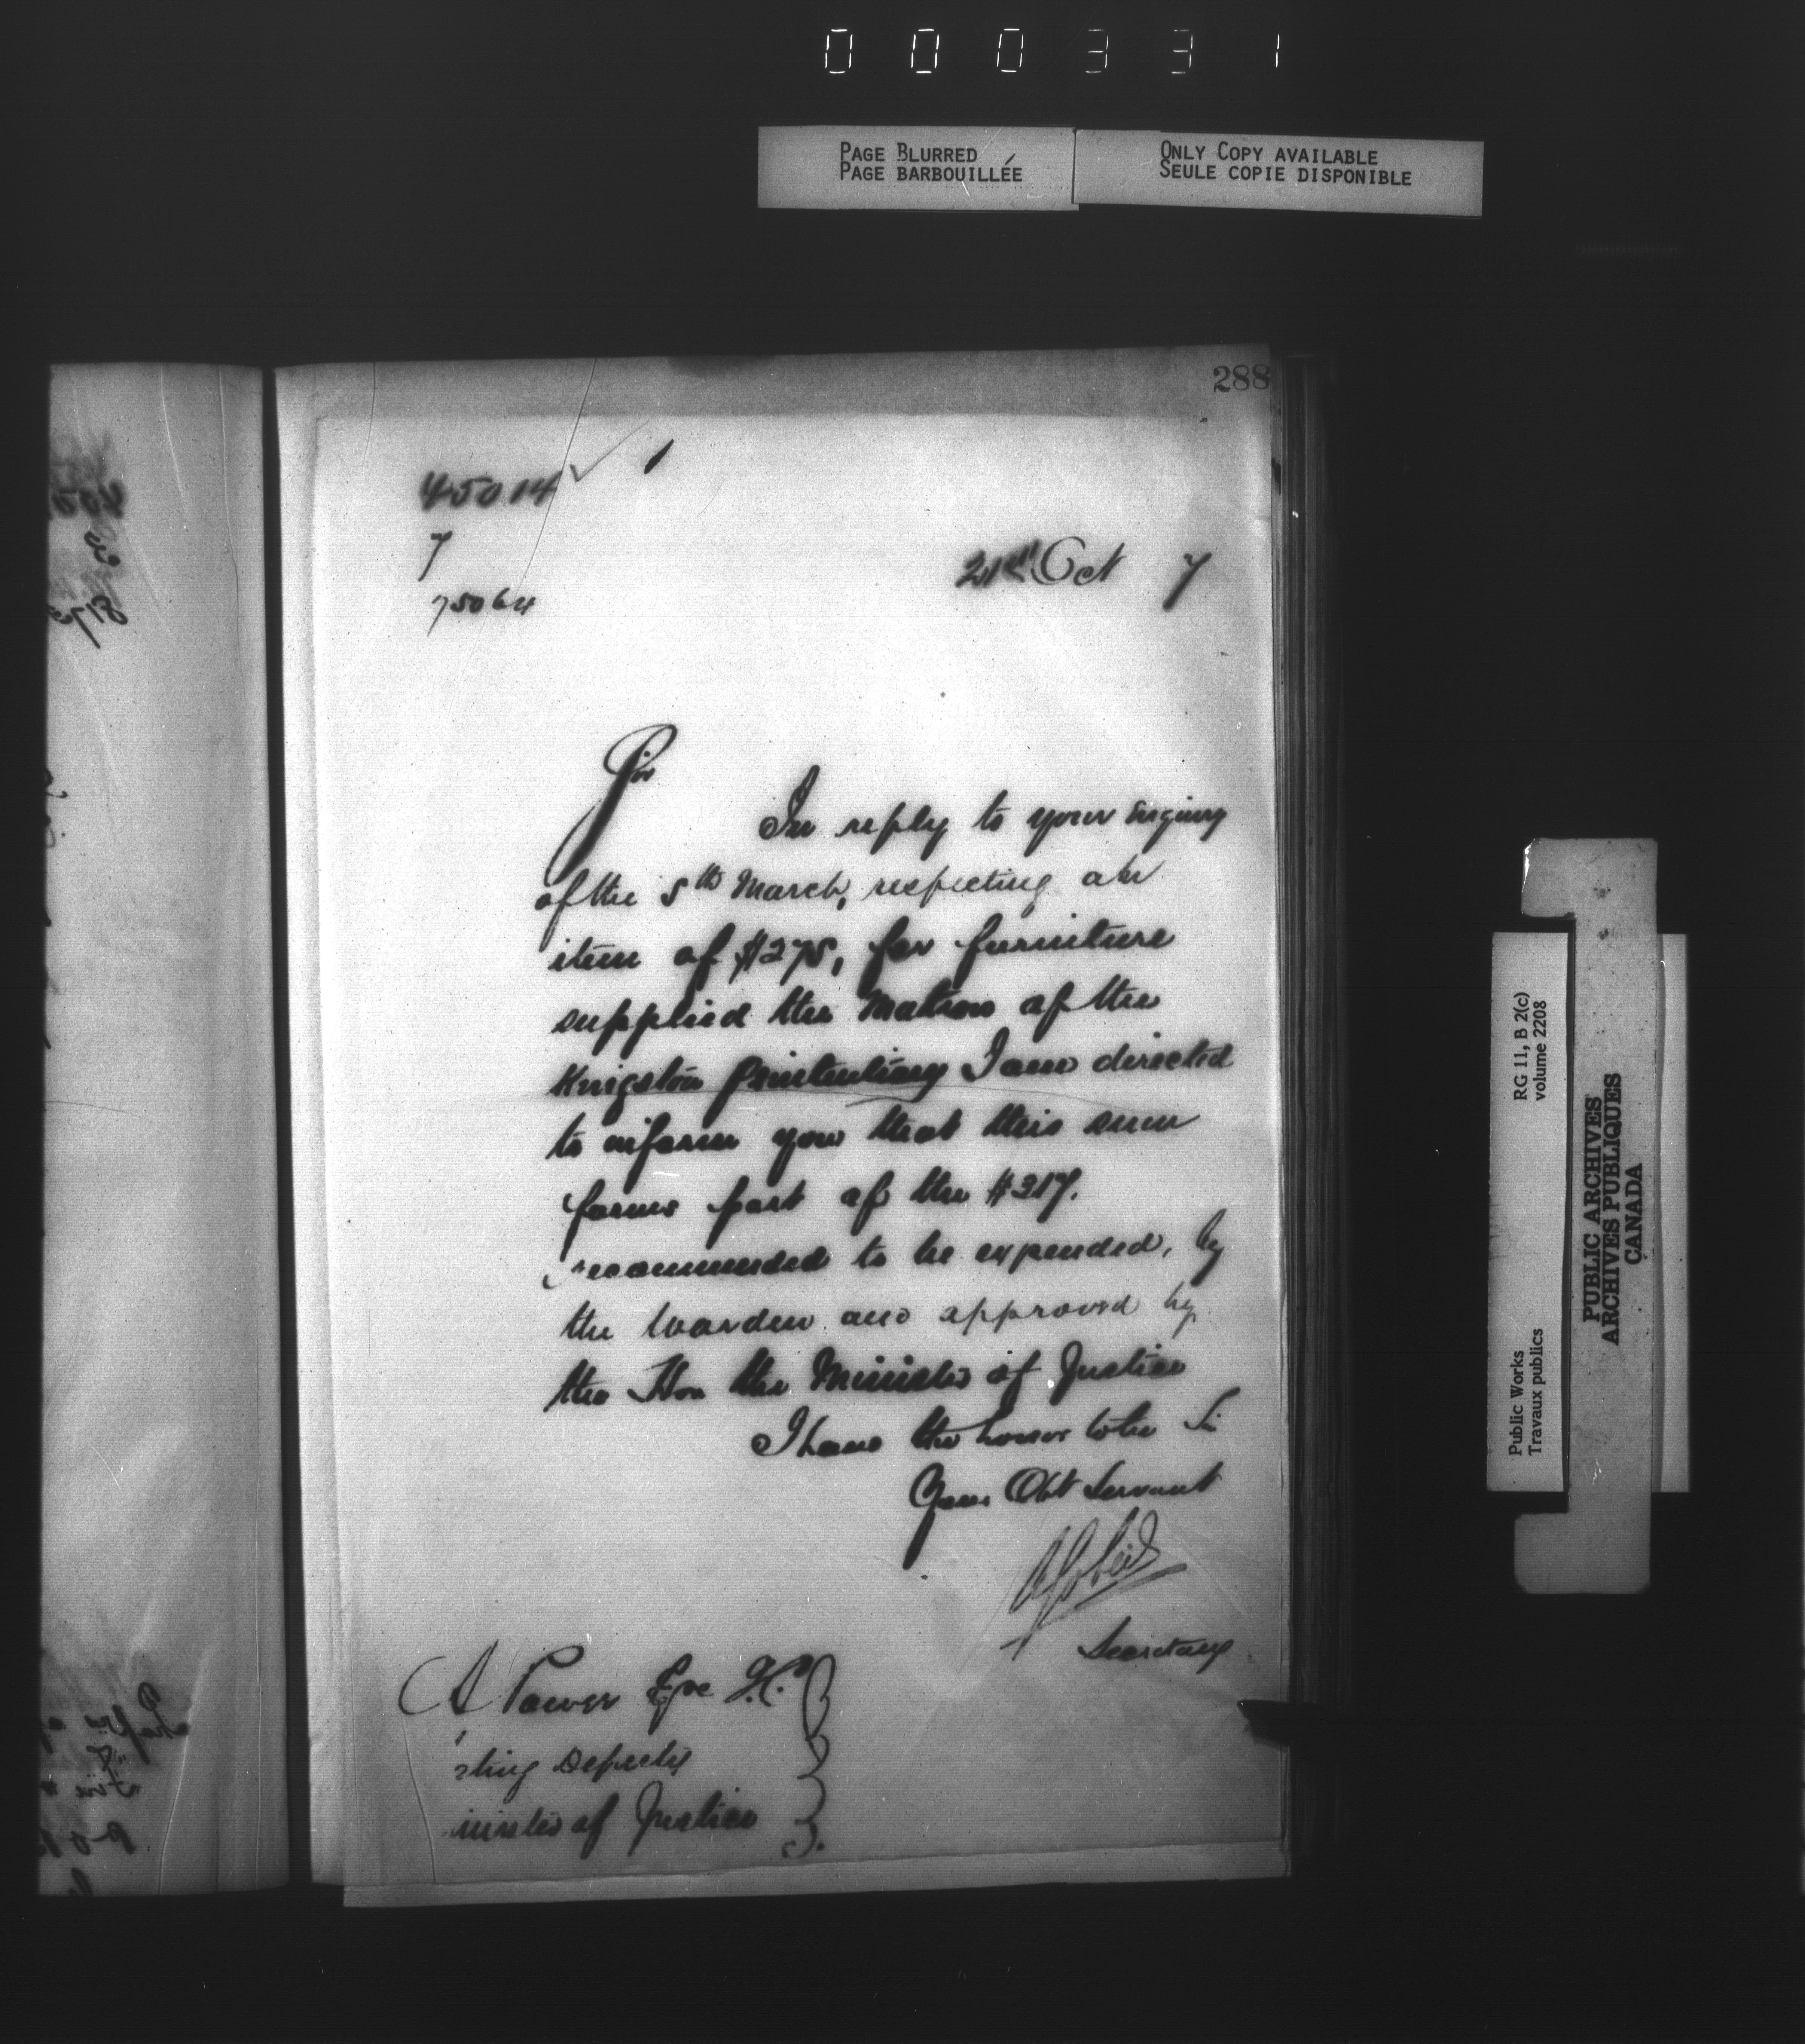 000331
PAGE BLURRED
PAGE BARBOUILLÉE
ONLY COPY AVAILABLE
SEULE COPIE DISPONIBLE
288
45014
7
75064
21st Oct 7
Sir
In reply to your enquiry
of the 5th March, respecting an
item of $275, for furniture
supplied the Matron of the
Kingston Penitentiary I am directed
to inform you that this sum
forms part of the $317.
recommended to be expended, by
the Warden and approved by
the Hon the Minister of Justice
I have the honor to be Sir
Your Obt Servant
Secretary
A Power Esqe
cting Deputy
inister of Justice
RG 11, B 2(c)
volume 2208
Public Works
Travaux publics
PUBLIC ARCHIVES
ARCHIVES PUBLIQUES
CANADA